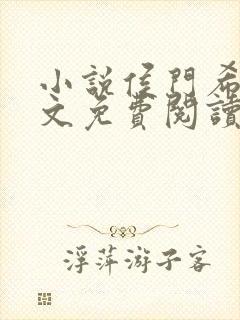 小說侯門希
文免費閱讀
浮萍游子客